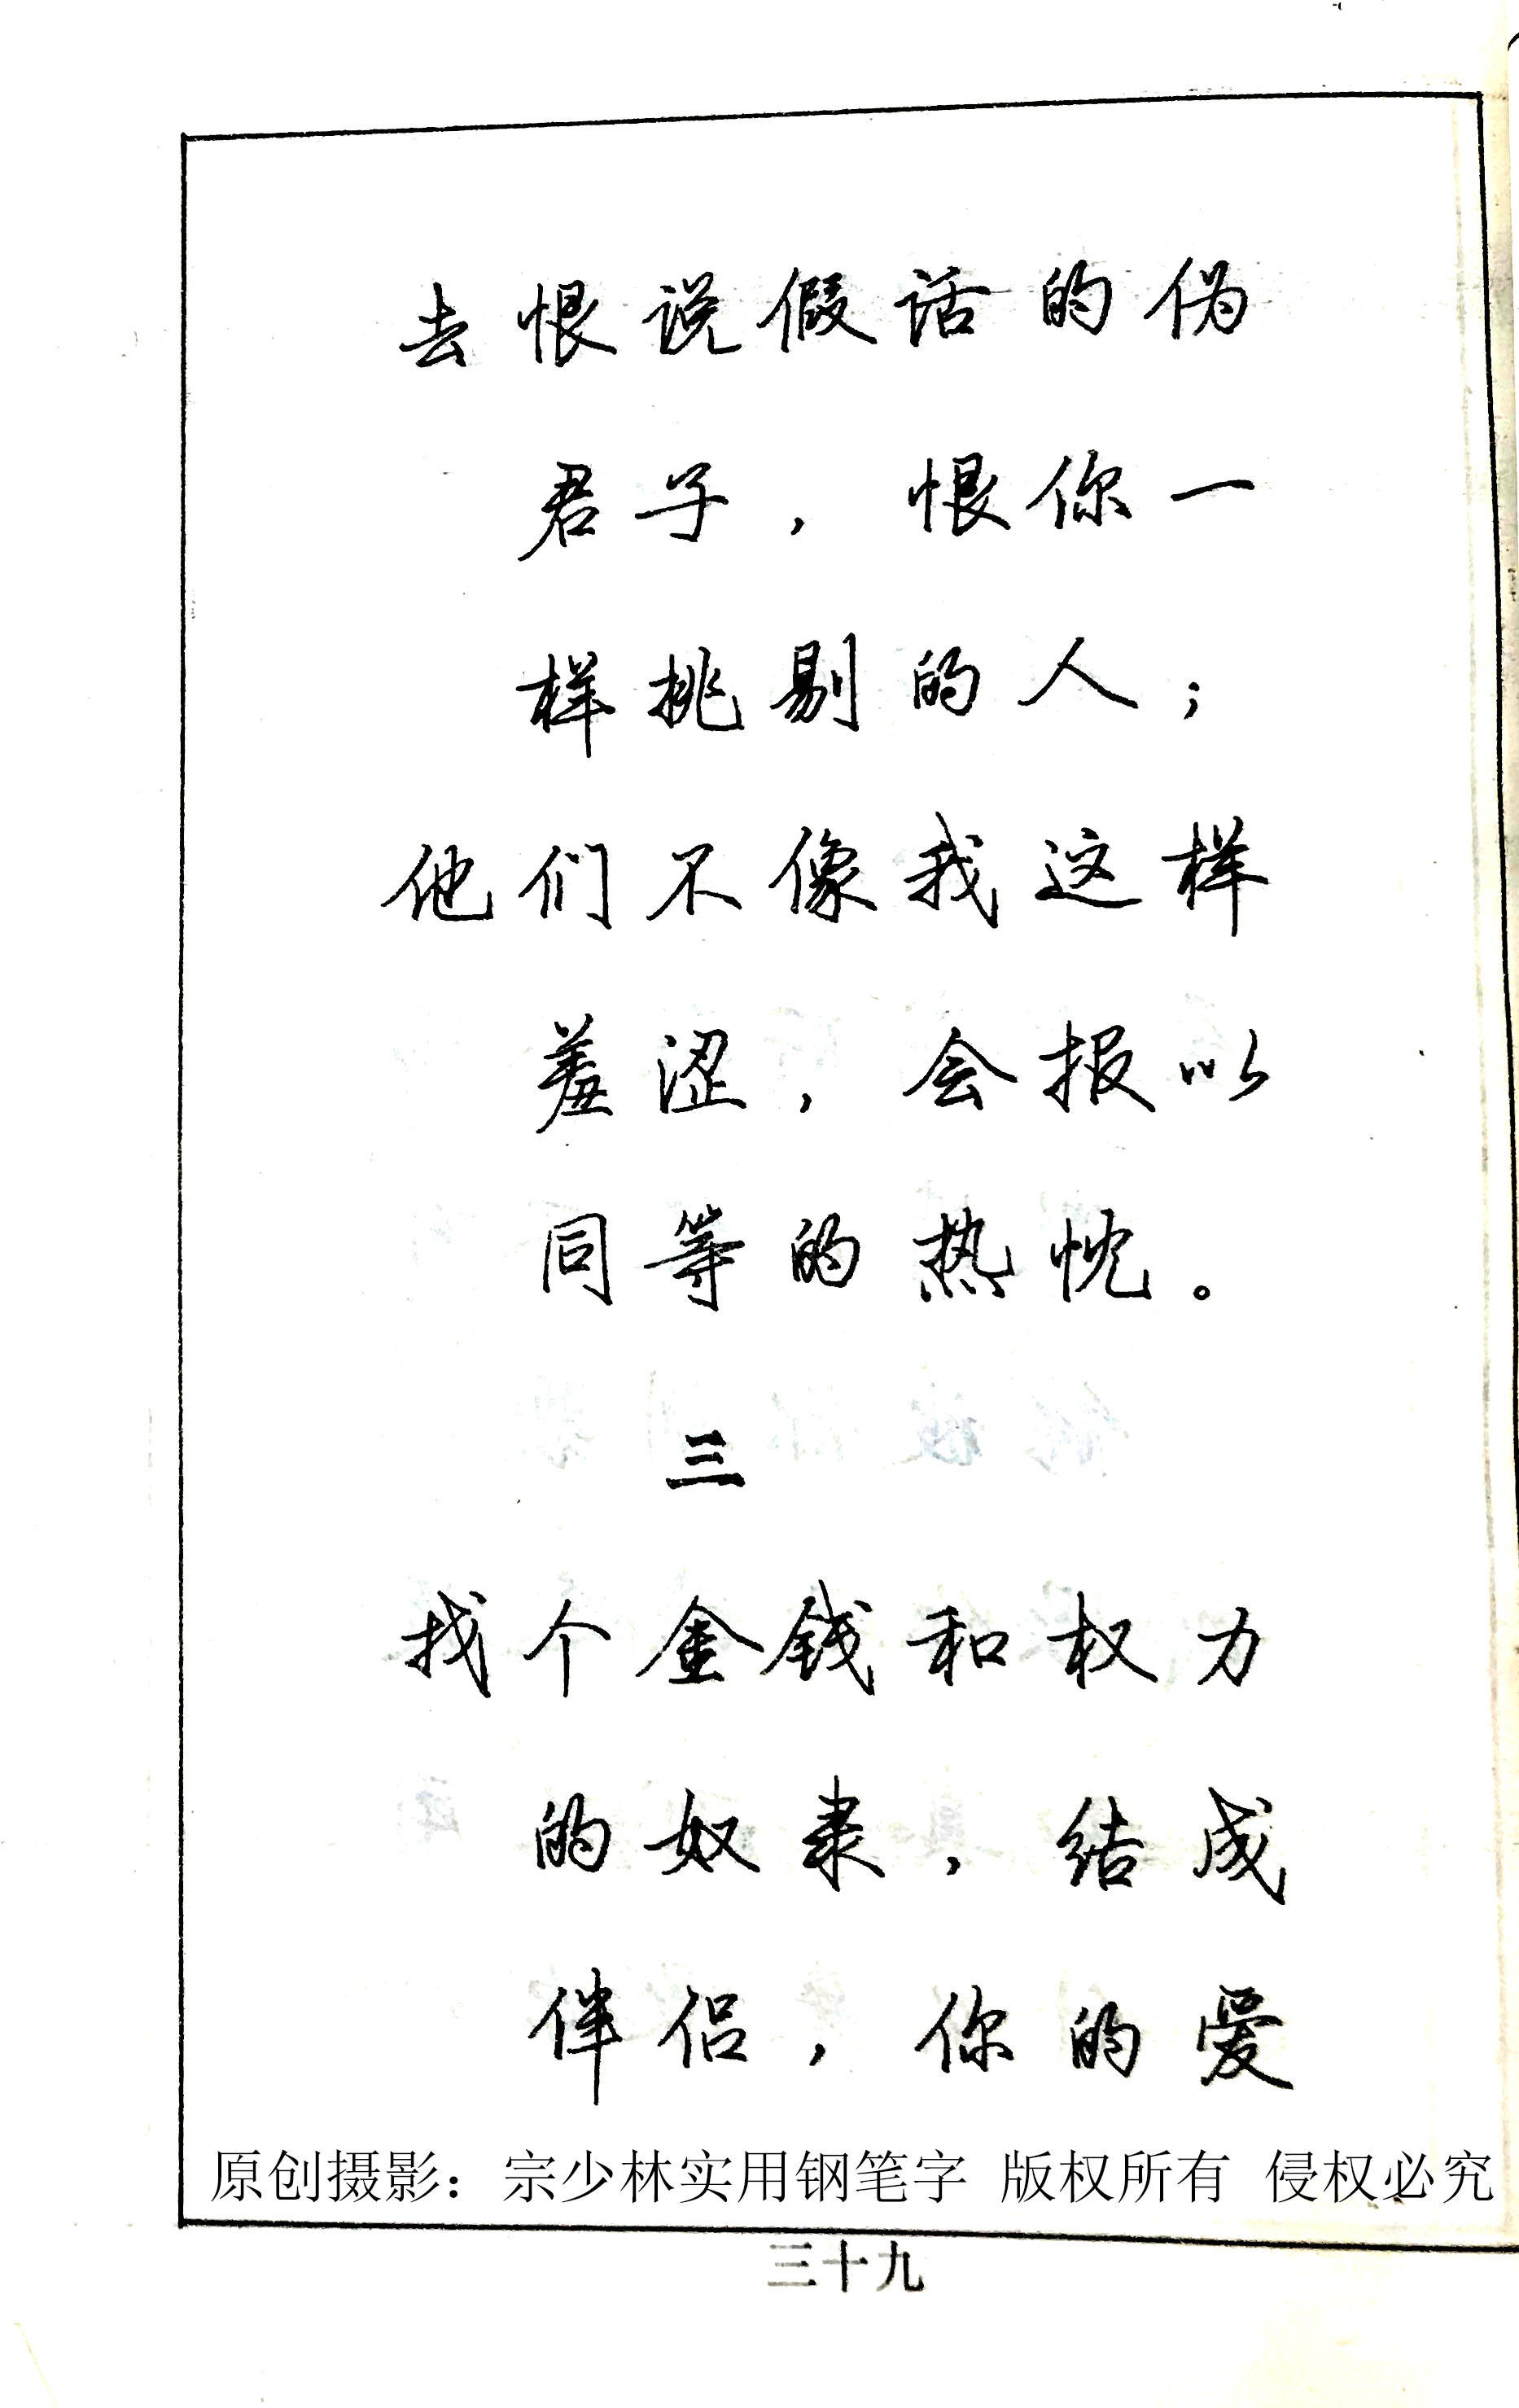 去恨说假话的伪
君子，恨你一
样挑剔的人；
他们不像我这样
羞涩，会报以
同等的热忱。
三
找个金钱和权力
的奴隶，结成
伴侣，你的爱
原创摄影：宗少林实用钢笔字 版权所有 侵权必究
三十九